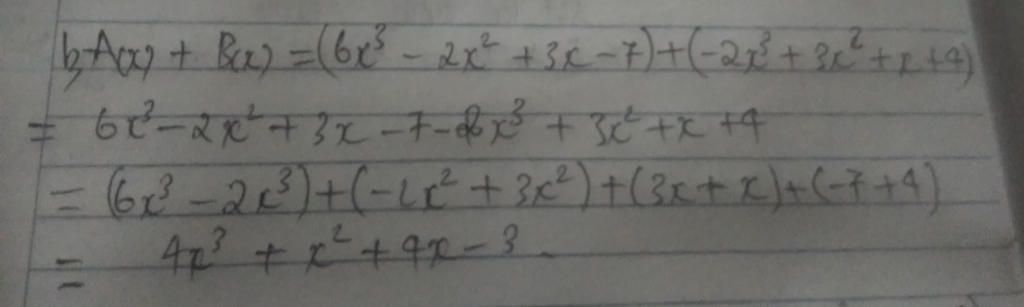 b, A(x) + B(x) = (6x³ - 2x² + 3x - 7) + (-2x³ + 3x² + x + 4)
= 6x³ - 2x² + 3x - 7 - 2x³ + 3x² + x + 4
= (6x³ - 2x³) + (-2x² + 3x²) + (3x + x) + (-7 + 4)
= 4x³ + x² + 4x - 3